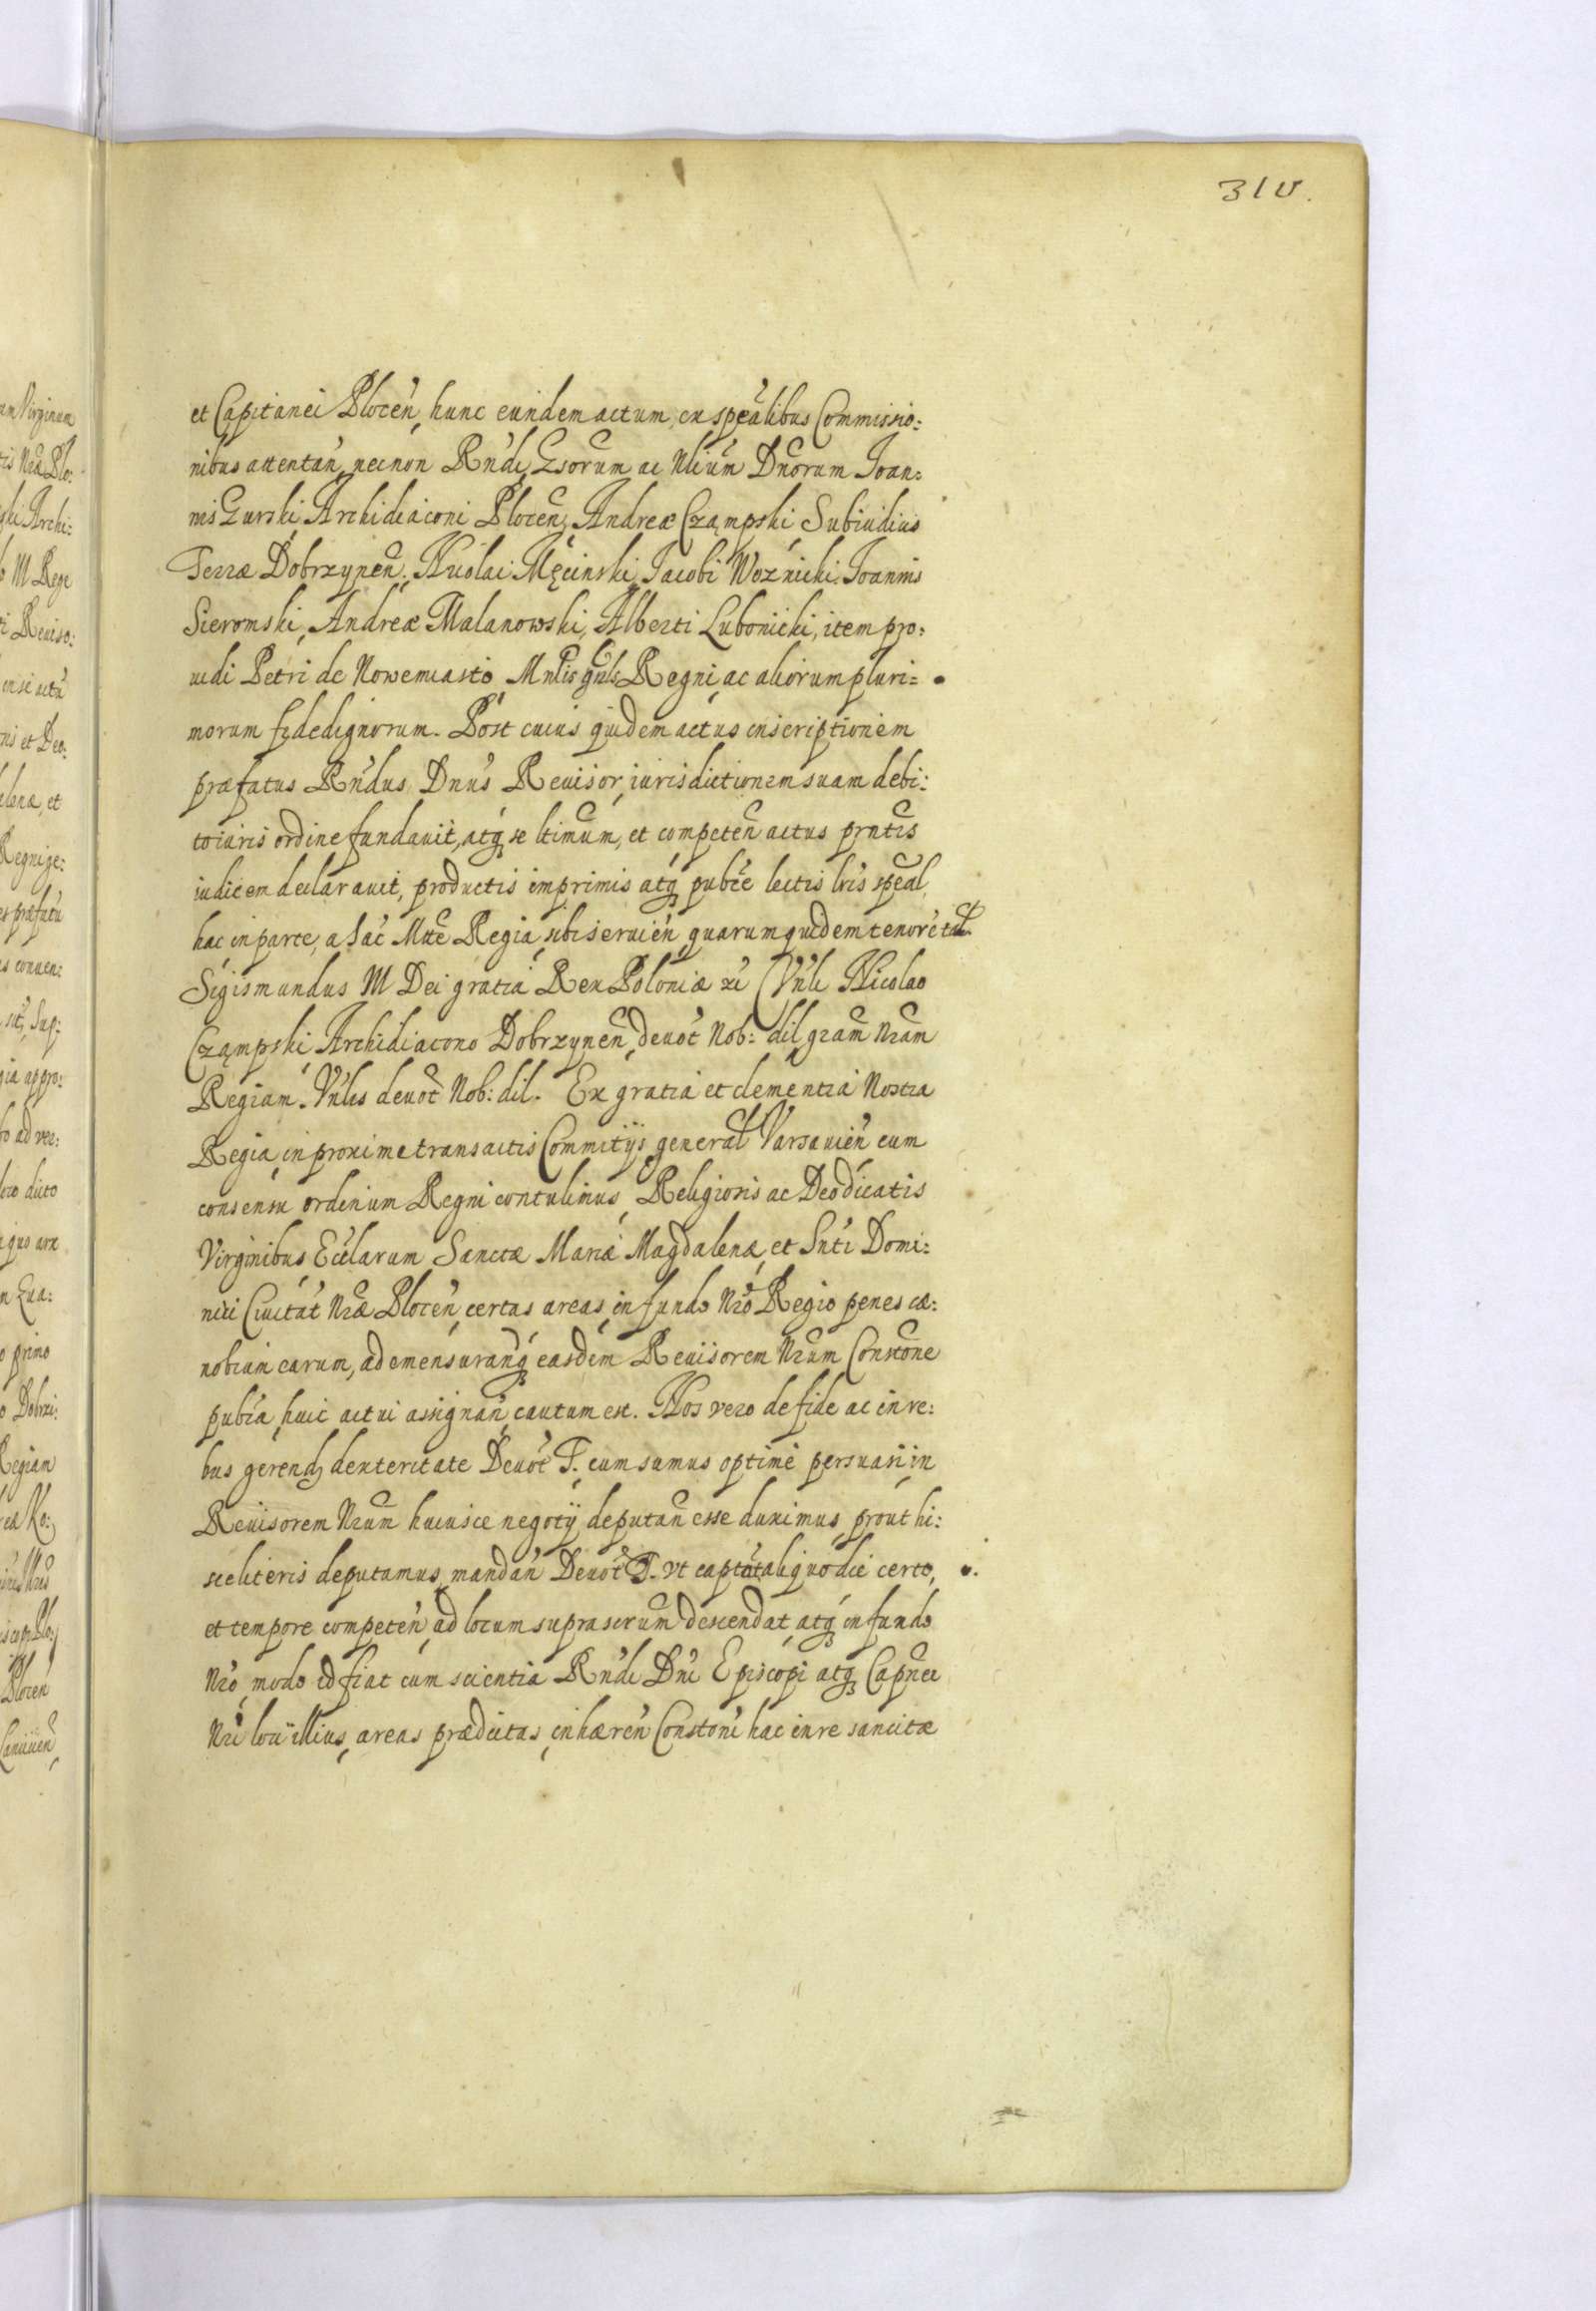 310.
et Capitanei Plocen̄, hunc eundem actum, ex speālibus Commissio:
nibus attentan̄, necnon Rn̄di, Gsorum ac Nlium Dnorum Ioan:
nis Gurski, Archidiaconi Plocen̄, Andreæ Czampski, Subiudicis
Terræ Dobrzynen̄. Nicolai Męcinski, Iacobi Woźnicki. Ioannis
Sieromski, Andreæ Malanowski, Alberti Lubonicki, item pro:
uidi Petri de Nowemiasto Regni, ac aliorum pluri=
morum fidedignorum. Post cuius quidem actus inscriptionem
præfatus Rn̄dus Dnus Reuisor, iurisdictionem suam debi:
to iuris ordine fundauit, atq̨ se ltimum, et competen̄ actus prntis
iudicem declarauit, productis imprimis atq̨ publce lectis lris speal
hac in parte, a Sac Mtte Regia, sibi seruien̄, quarum quidem tenor e tal
Sigismundus III Dei gratia Rex Poloniæ Vnli Nicolao
Czampski, Archidiacono Dobrzynen̄, deuot Nob: dil, gram Nram
Regiam. Vnlis deuot Nob: dil. Ex gratia et clementia Nostra
Regia, in proxime transactis Commitijs, general Varsauien̄ cum
consensu ordinum Regni contulimus, Religiosis ac Deo dicatis
Virginibus Ecclarum Sanctæ Mariæ Magdalenæ, et Snti Domi:
nici Ciuitat Nræ Plocen̄, certas areas, in fundo Nro Regio penes cæ:
nobium earum, ad emensurand q̨ easdem Reuisorem Nrum Constone
publca, huic actui assignan̄, cautum est. Nos vero de fide ac in re:
bus gerend dexteritate Deuot T. cum sumus optime persuasi, in
Reuisorem Nrum huiusce negotij deputan̄ esse duximus, prout hi:
sce literis deputamus, mandan̄ Deuot T. vt captat aliquo die certo,
et tempore competen̄, ad locum suprascrum descendat, atq̨ in fundo
Nro, modo id fiat cum scientia Rn̄di Dni Episcopi atq̨ Capnei
Nri loci illius, areas prædictas, inhæren̄ Constoni hac in re sancitæ